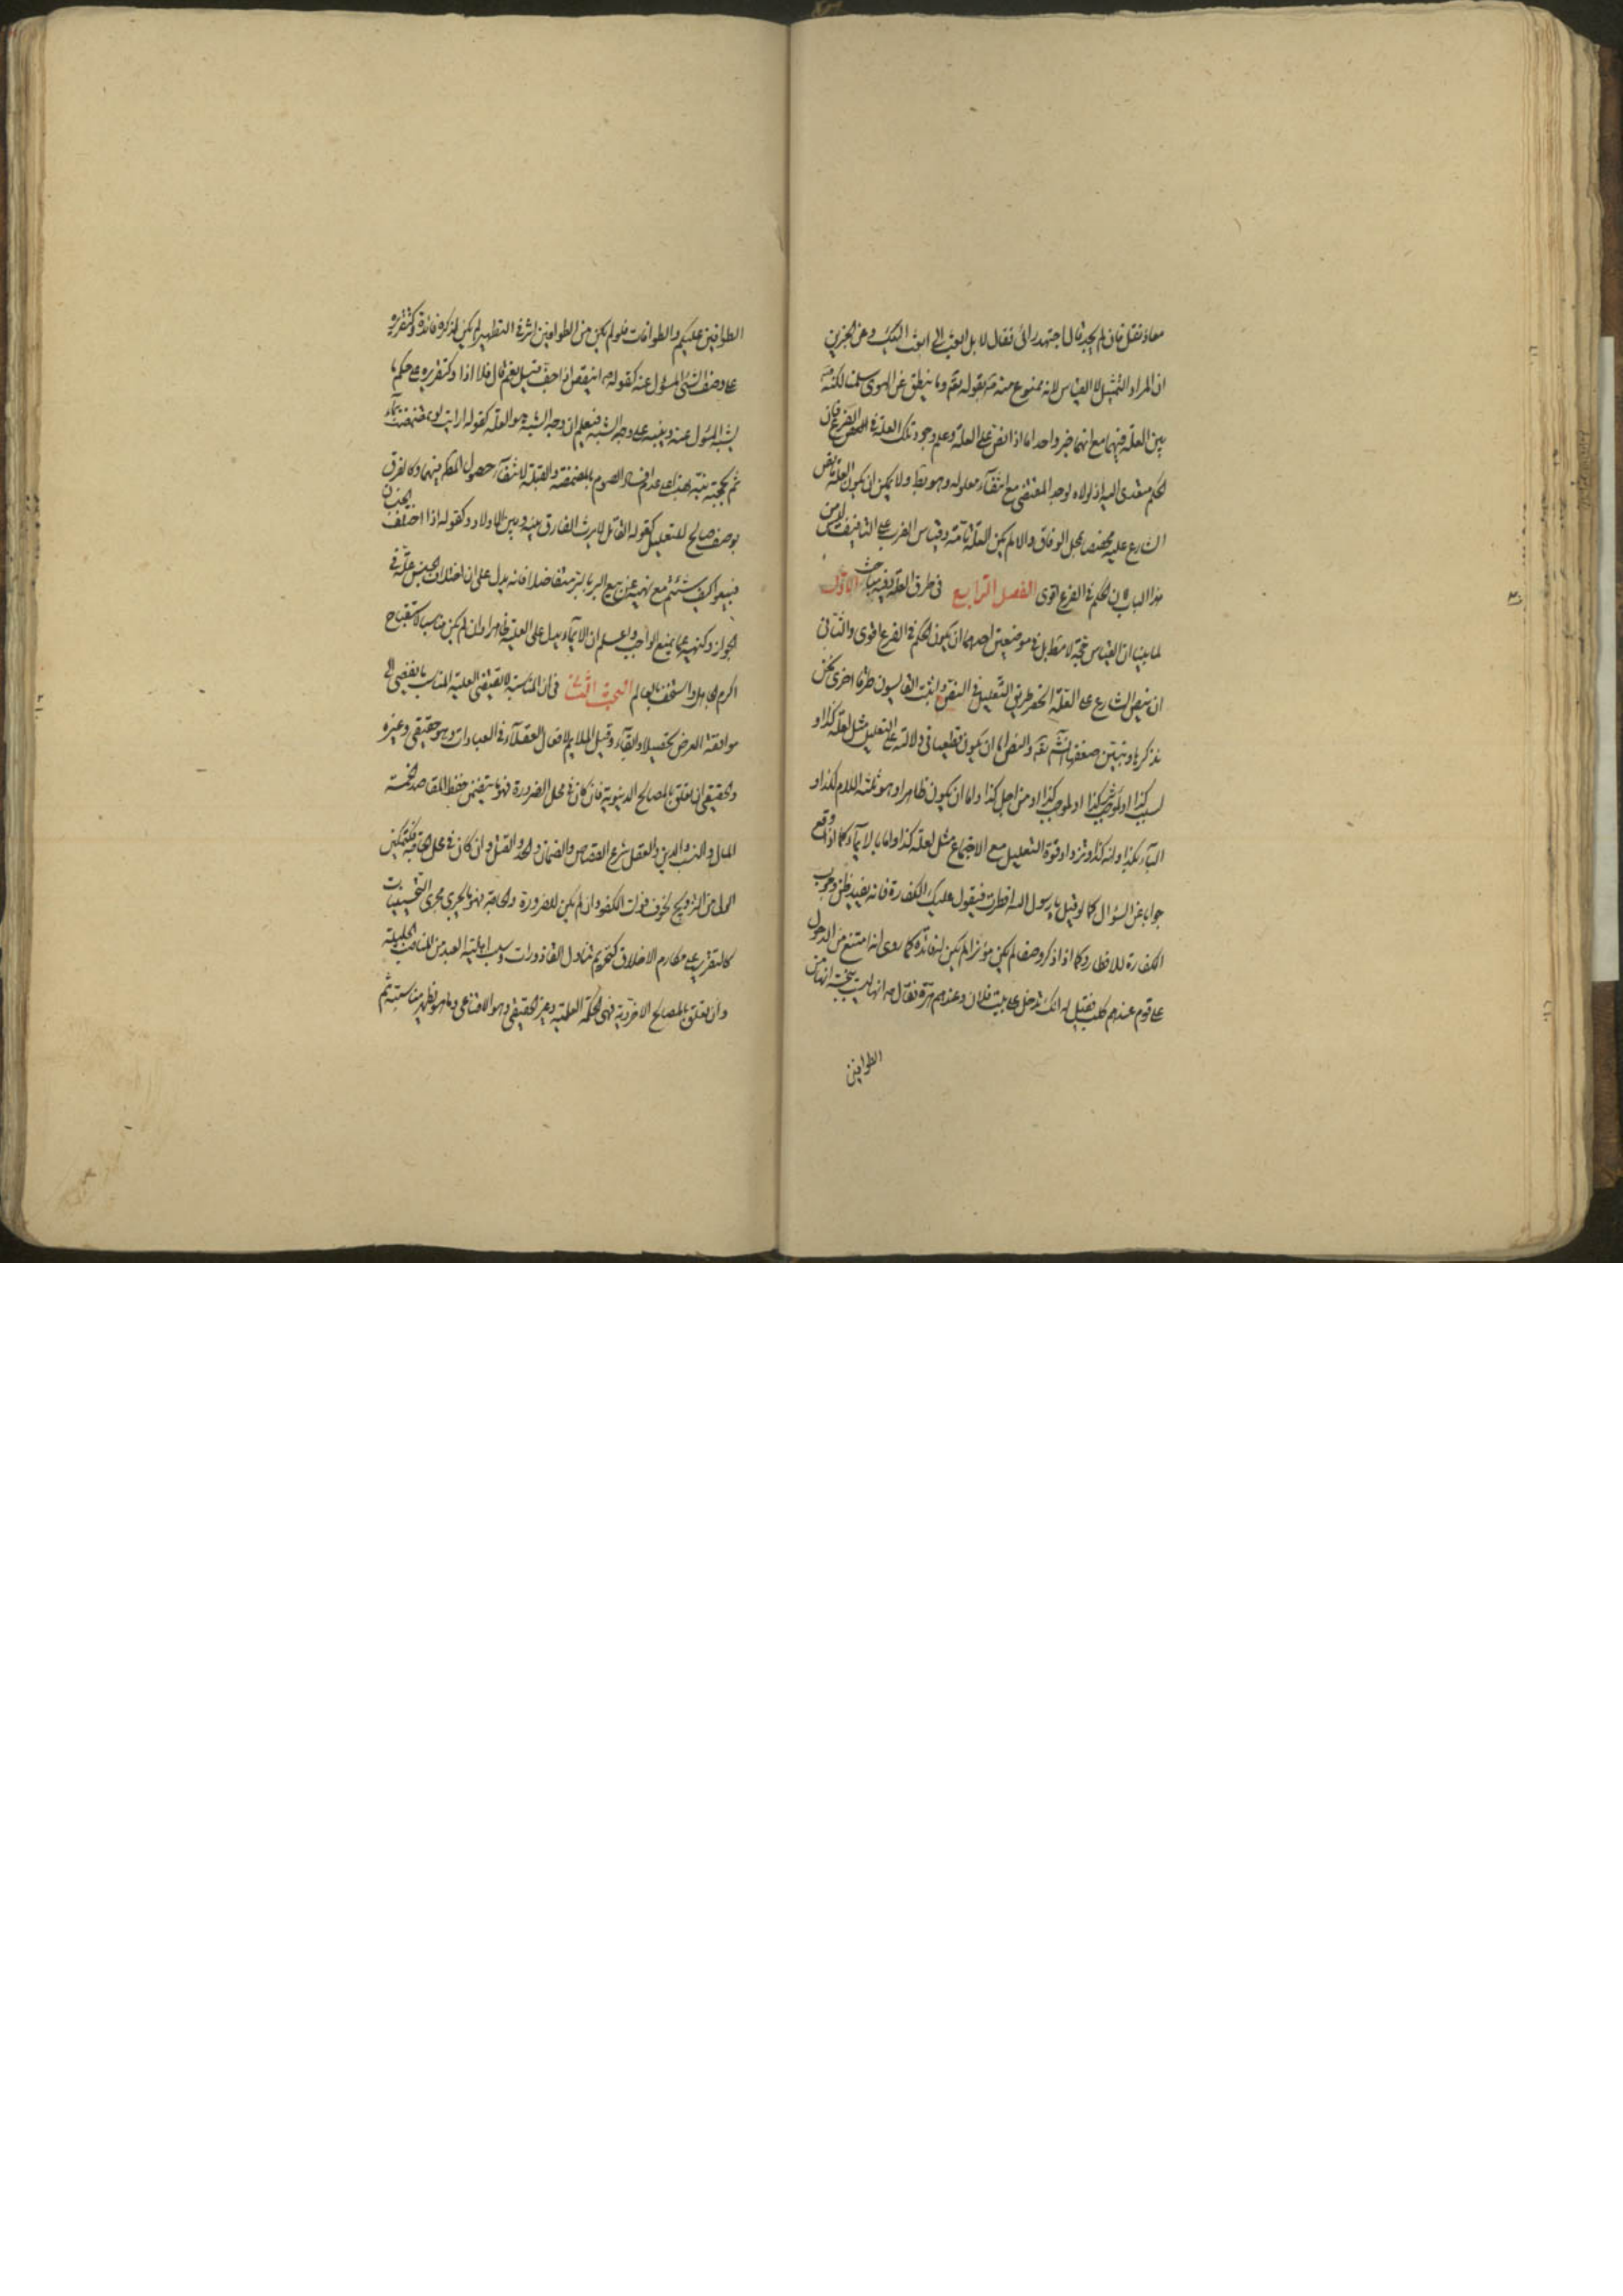 معاذ نقل فان لم يجد قال اجتهد رائى فقال لا بل ابعث الى ابعث اليك وعن الخبرين
ان المراد التمثيل لا القياس لانه ممنوع منه لقوله تع وما ينطق عن الهوى سلمنا لكنه
بين العلة فيهما مع انهما خبر واحد اما اذا نص على العلة وعلم وجود تلك العلة فى الفرع فان
الحكم متعدى اليه اذ لولاه لوجد المقتضى مع انتفاء معلوله وهو بط ولا يمكن ان يكون العلة نص
الشارع عليه مختصا بمحل الوفاق والا لم يكن العلة تامة وقياس الضرب على التافيف ليس من
هذا الباب لان الحكم فى الفرع اقوى الفصل الرابع فى طرق العلة وفيه مباحث الاول
لما بينا ان القياس حجة لا مط بل فى موضعين احدهما ان يكون الحكم فى الفرع اقوى والثانى
ان ينص الشارع على العلة انحصر طريق التعليل فى النص واثبت القايسون طرقا اخرى نحن
نذكرها ونبين ضعفها انشاء الله تع والنص اما ان يكون قطعيا فى دلالته على التعليل مثل لعلة كذا او
لسبب كذا او لمؤثر كذا او لموجب كذا او من اجل كذا واما ان يكون ظاهرا وهو ثلثة اللام لكذا و
الباء بكذا وانه كذا وتزداد قوة التعليل مع الاجتماع مثل لعلة كذا واما بالايماء كما اذا وقع
جوابا عن السؤال كما لو قيل يا رسول الله افطرت فيقول عليك الكفارة فانه يفيد ظن وجوب
الكفارة للافطار وكما اذا ذكر وصفا لم يكن مؤثرا لم يكن لفائدة كما روى انه امتنع من الدخول
على قوم عندهم كلب فقيل له انك تدخل على بيت فلان وعندهم هرة فقال انها ليست بنجسة انها من
الطوافين
الطوافين عليكم والطوافات فلو لم يكن من الطوافين اثر فى التطهير لم يكن لذكره فائدة وكتقريره
على وصف الشئ المسؤل عنه كقوله اينقص اذا جف قيل نعم قال فلا اذا وكتقريره على حكم ما
يشبه المسؤل عنه وينبه على وجه الشبه فيعلم ان وجه الشبه هو العلة كقوله ارايت لو تمضمضت بماء
ثم مججته ينبه بهذا على عدم افساد الصوم بالمضمضة والقبلة لانتفاء حصول المط فيهما وكالفرق
بوصف صالح للتعليل كقوله القاتل لا يرث الفارق بينه وبين الاولاد وكقوله اذا اختلف الجنسان
فبيعوا كيف شئتم مع نهيه عن بيع البر بالبر متفاضلا فانه يدل على ان اختلاف الجنس علة فى
الجواز وكنهيه عما يمنع الواجب واعلم ان الايماء يدل على العلية ظاهرا وان لم يكن مناسبا لاستقباح
اكرم الجاهل واستخف بالعالم البحث الثانى فى ان المناسبة لا تقتضى العلية المناسب ما يفضى الى
موافقة الغرض تحصيلا وابقاء وقيل الملايم لافعال العقلاء فى العبادات وهو حقيقى وغيره
والحقيقى ان تعلق بالمصالح الدنيوية فان كان فى محل الضرورة فهو ما يتضمن حفظ المقاصد الخمسة
المال والنسب والدين والعقل شرع القصاص والضمان والحد والقتل وان كان فى محل الحاجة فكتمكين
الولى من التزويج لخوف فوات الكفو وان لم يكن للضرورة والحاجة فهو ما يجرى مجرى التحسينات
كالتقرير على مكارم الاخلاق كتحريم تناول القاذورات وسلب اهلية العبد من المناصب الجليلة
وان تعلق بالمصالح الاخروية فهى الحكمة العلمية وغير الحقيقى وهو الاقناعى وما هو يظهر مناسبته ثم